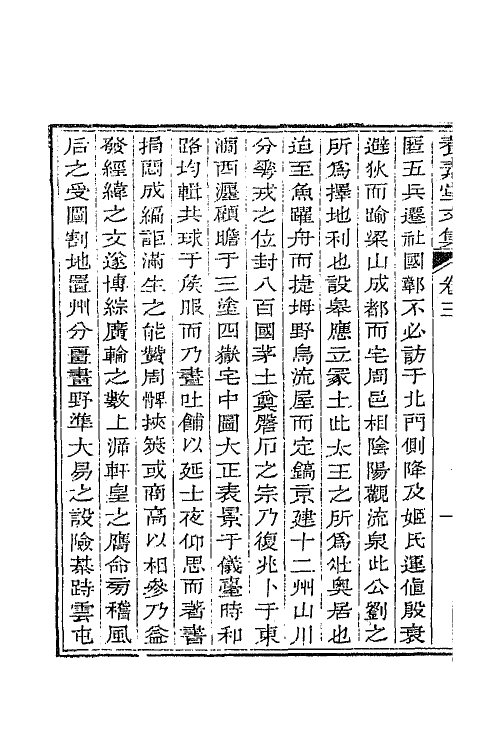 養素堂文集 卷三 一
匽五兵遷社國不必訪于北門側降及姬氏運值殷衰
避狄而踰梁山成都而宅周邑相陰陽觀流泉此公劉之
所爲擇地利也設皋應立冢土此太王之所爲壯奧居也
迨至魚躍舟而捷坶野烏流屋而定鎬京建十二州山川
分戒之位封八百國茅土奠磐石之宗乃復兆卜于東
澗西瀍顧瞻于三塗四嶽宅中圖大正表景于儀臺時和
路均輯共球于矦服而乃晝吐餔以延士夜仰思而著書
揭成編詎滿生之能贊周髀挾筴或商高以相參乃益
發經緯之文遂博綜廣輪之數上溯軒皇之膺命稽風
后之受圖割地置州分畺畫野準大易之設險綦跱雲屯